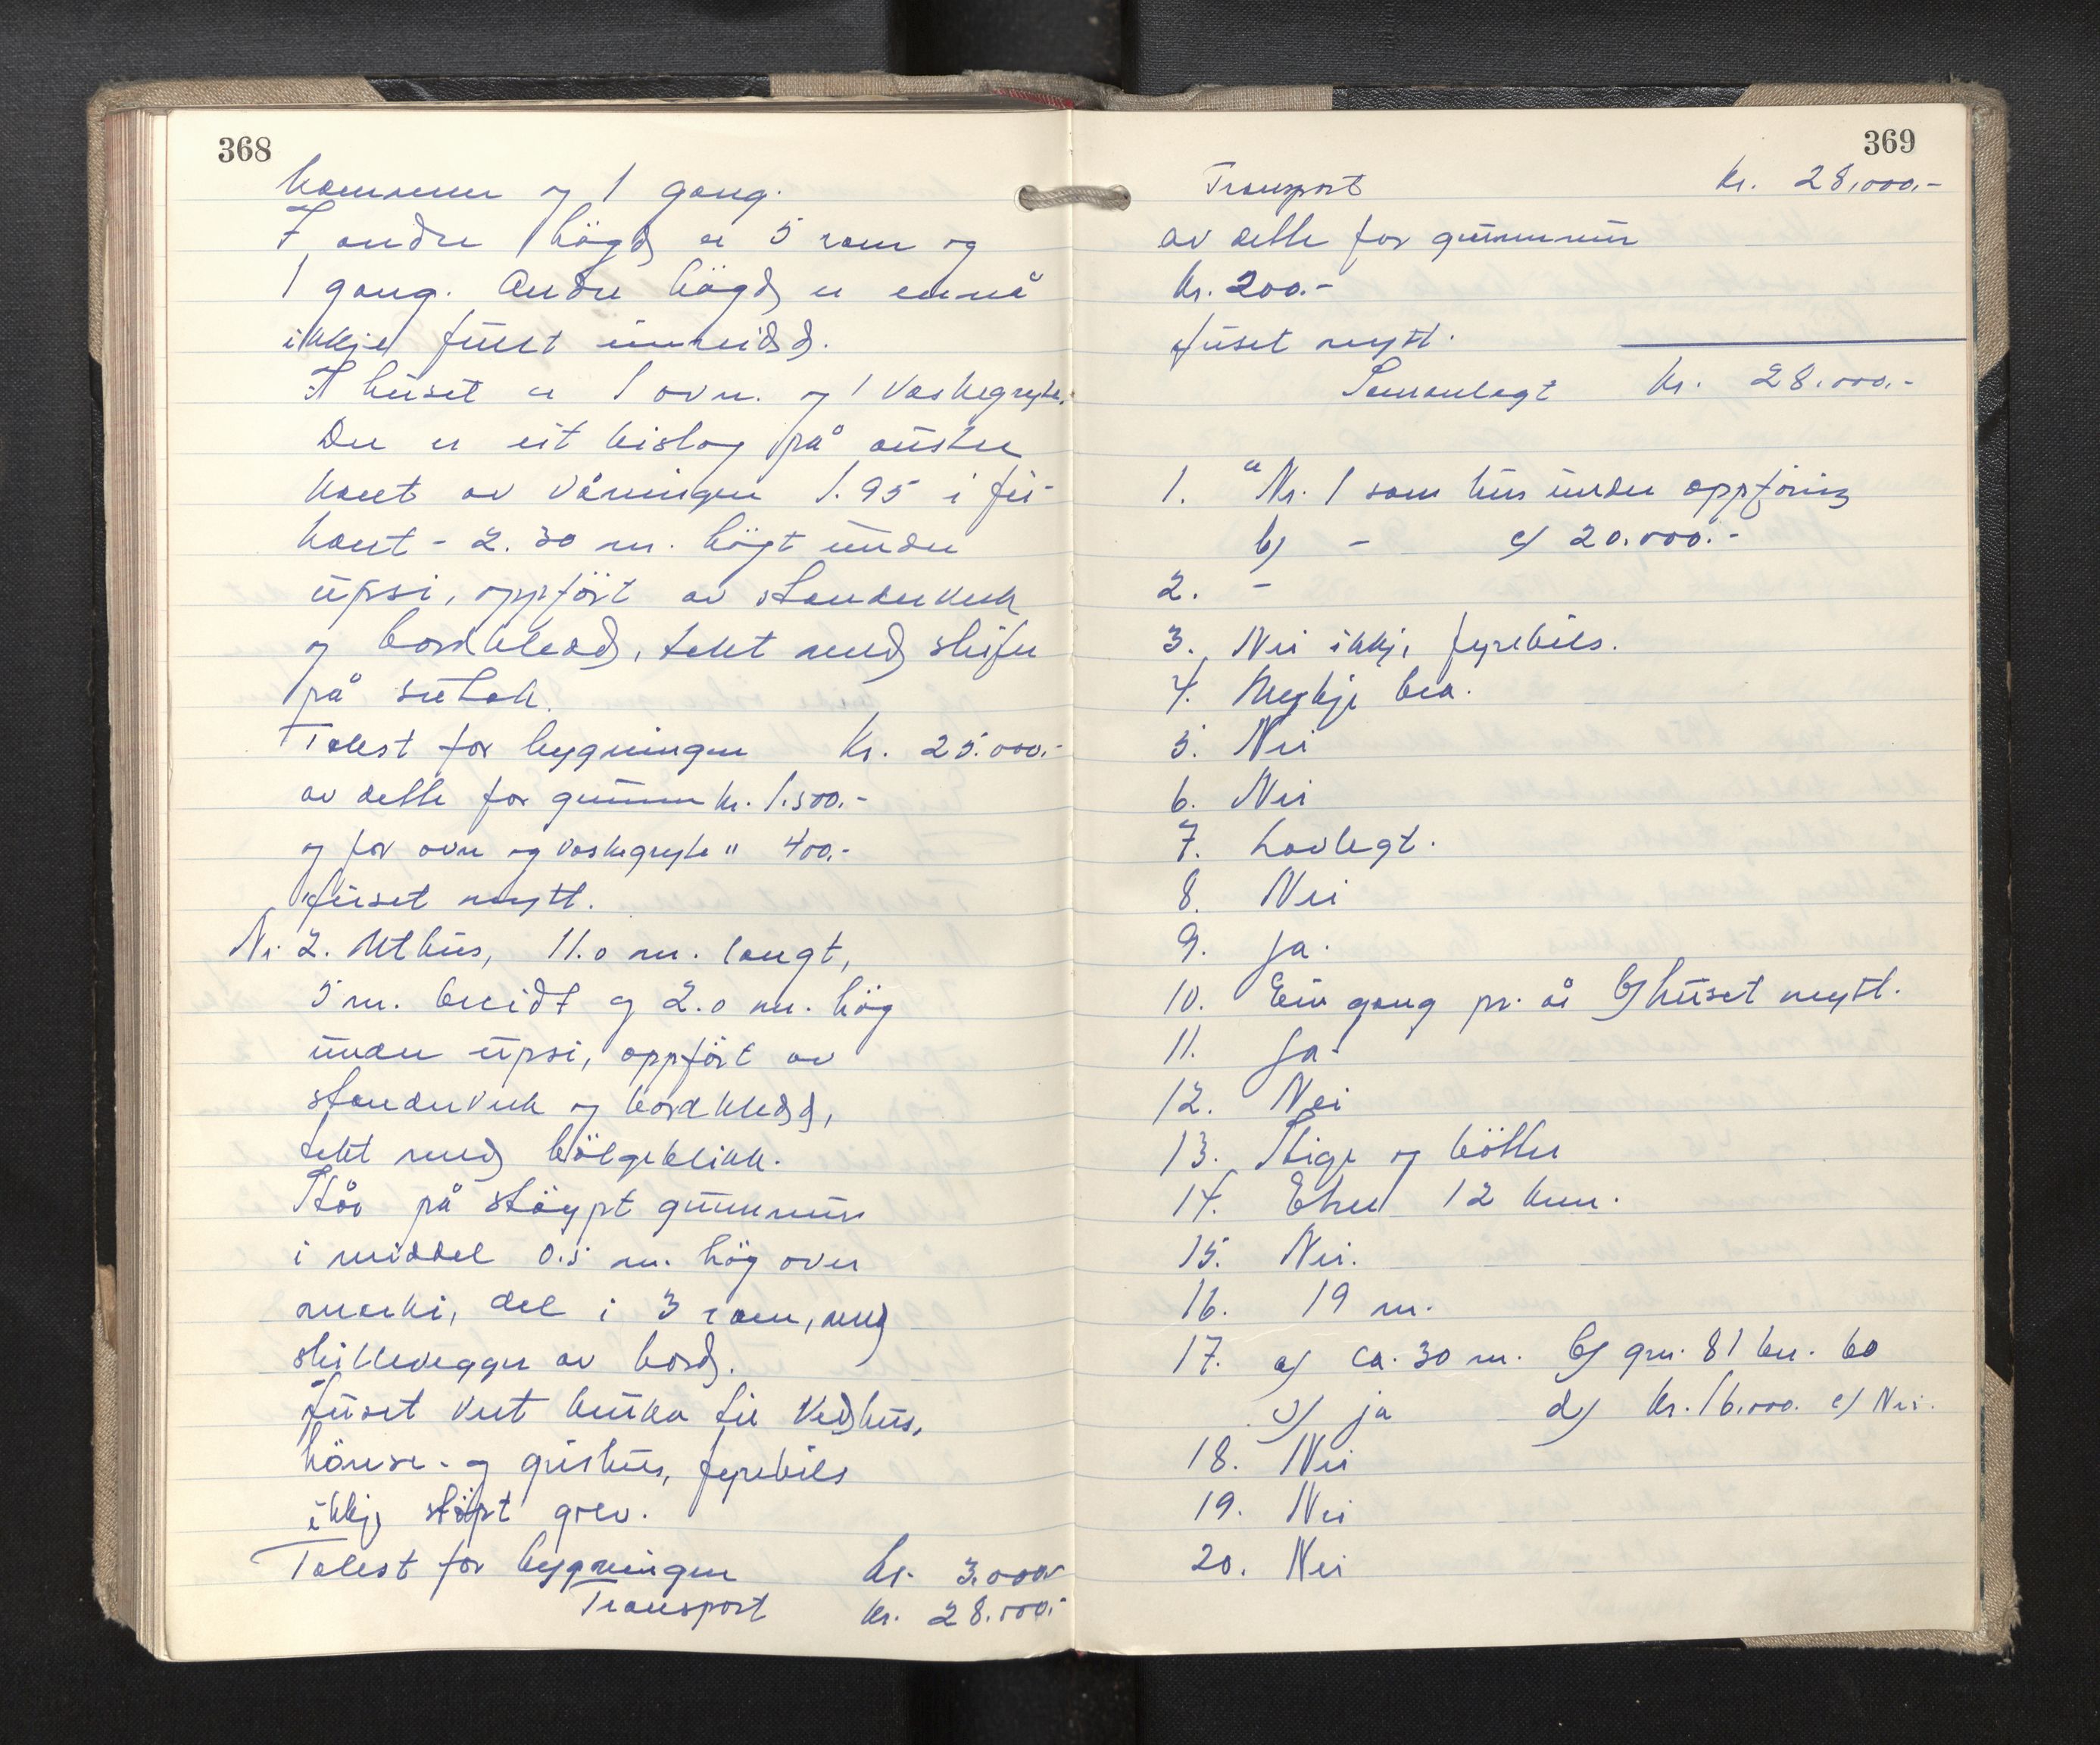 368
kammer og 1 gang.
I andre högd er 5 rom og
1 gang. Andre högd er ennå
ikkje fullt innreidd.
I huset er 1 ovn. og 1 vaskegryte.
Der er eit bislag på austre
kant av våningen 1.95 i fir-
kant - 2.30 m. högt under
upsi, oppfört av standerverk
og bordkledd, tekt med skifer
på sutak.
Takst for bygningen Kr. 25.000.-
av dette for grunnm kr. 1.500.-
og for ovn og vaskegryte " 400.-
Huset nytt.
Nr 2. Uthus, 11.0 m. langt,
5 m. breidt og 2.0 m. hög
under upsi, oppfört av
standerverk og bordkledd,
tekt med bölgeblikk.
Står på stöypt grunnmur
i middel 0.5 m. hög over
marki, del i 3 rom, med
skillevegger av bord.
Huset vert bruka til vedhus,
hönse- og grishus, fyrebils
ikkje stöpt grev.
Takst for bygningen kr. 3.000.-
Transport kr. 28.000.-
369
Transport kr. 28.000.-
av dette for grunnmur
kr. 200.-
Huset nytt.
Samanlagt kr. 28.000.-
1. a Nr. 1 som hus under oppföring
b) - c) 20.000.-
2. -
3. Nei ikkje fyrebils.
4. Mykje bra.
5. Nei
6. Nei
7. Lovlegt.
8. Nei
9. Ja.
10. Ein gang pr. år b) huset nytt.
11. Ja.
12. Nei
13. Stige og bötter
14. Etne 12 km.
15. Nei.
16. 19 m.
17. a) ca. 30 m. b) gnr. 81 bn. 60
c) ja d) Kr. 16.000. e) Nei.
18. Nei
19. Nei
20. Nei